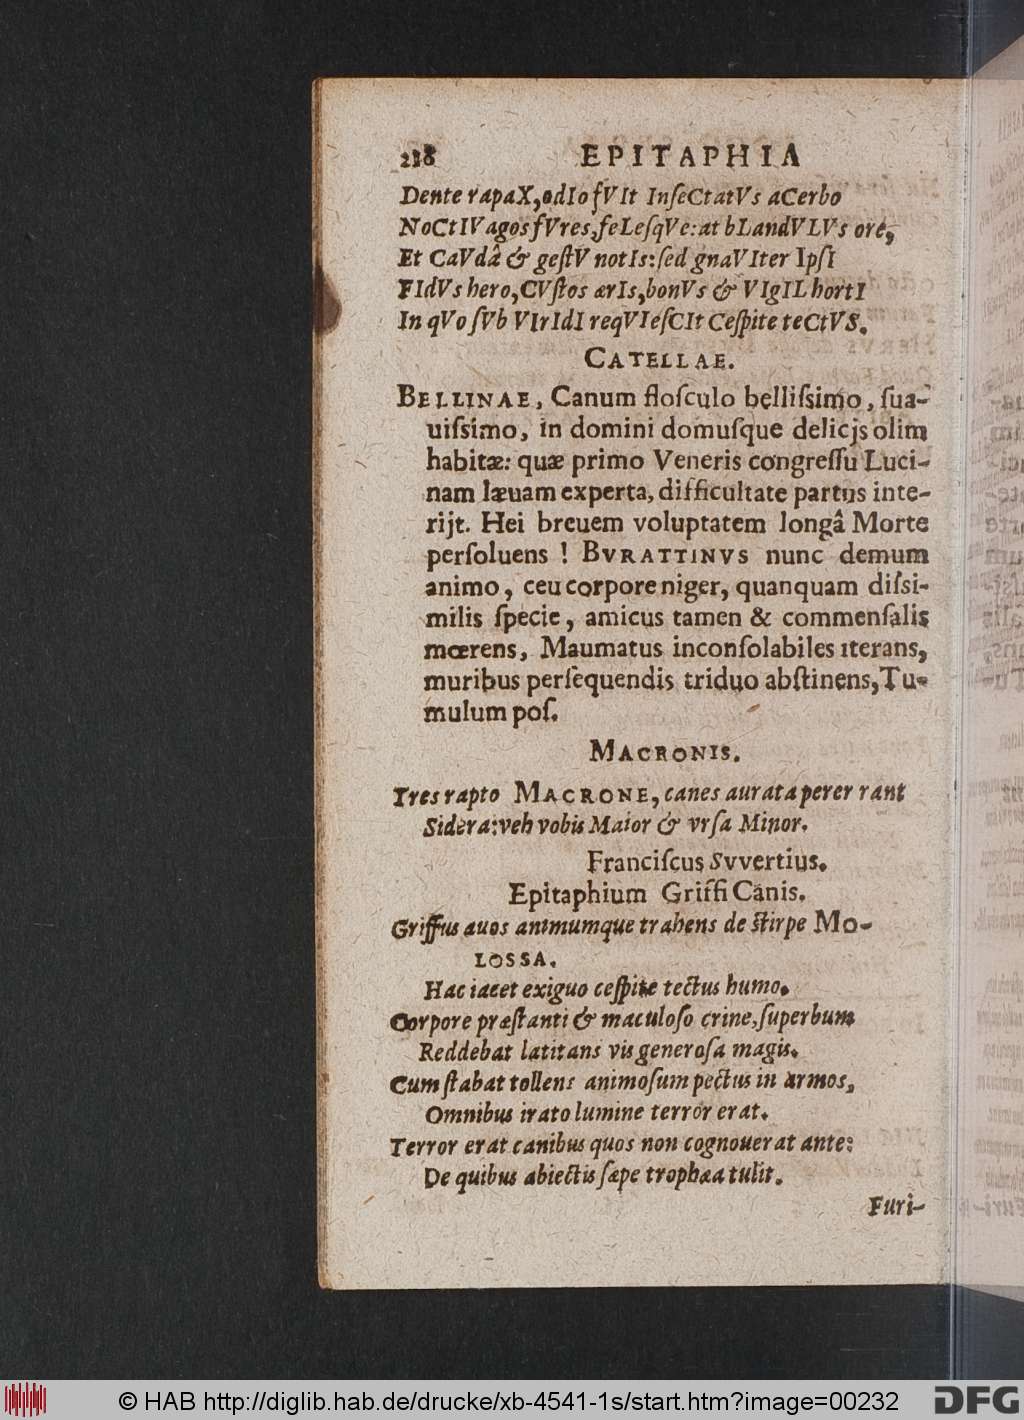 218 EPITAPHIA
Dente rapaX, odIo fVIt InſeCtatVs aCerbo
NoCtIVagos fVres, feLeſqVe: at bLandVLVs ore,
Et CaVdâ & geſtV notIs: ſed gnaVIter IpſI
FIdVs hero, CVſtos ærIs, bonVs & VIgIL hortI
In qVo ſVb VIrIdI reqVIeſCIt Ceſpite teCtVS.
CATELLAE.
BELLINAE, Canum floſculo belliſsimo, ſua-
uiſsimo, in domini domuſque delicjs olim
habitæ: quæ primo Veneris congreſſu Luci-
nam læuam experta, difficultate partus inte-
rijt. Hei breuem voluptatem longâ Morte
perſoluens ! BVRATTINVS nunc demum
animo, ceu corpore niger, quanquam diſsi-
milis ſpecie, amicus tamen & commenſalis
mœrens, Maumatus inconſolabiles iterans,
muribus perſequendis triduo abſtinens, Tu-
mulum poſ.
MACRONIS.
Tres rapto MACRONE, canes aurata pererrant
Sidera: veh vobis Maior & vrſa Minor.
Franciſcus Svvertius.
Epitaphium Griffi Canis.
Griffus auos animumque trahens de ſtirpe MO-
LOSSA.
Hac iacet exiguo ceſpite tectus humo.
Corpore præſtanti & maculoſo crine, ſuperbum
Reddebat latitans vis generoſa magis.
Cum ſtabat tollens animoſum pectus in armos,
Omnibus irato lumine terror erat.
Terror erat canibus quos non cognouerat ante:
De quibus abiectis ſæpe trophæa tulit.
Furi-
© HAB http://diglib.hab.de/drucke/xb-4541-1s/start.htm?image=00232
DFG